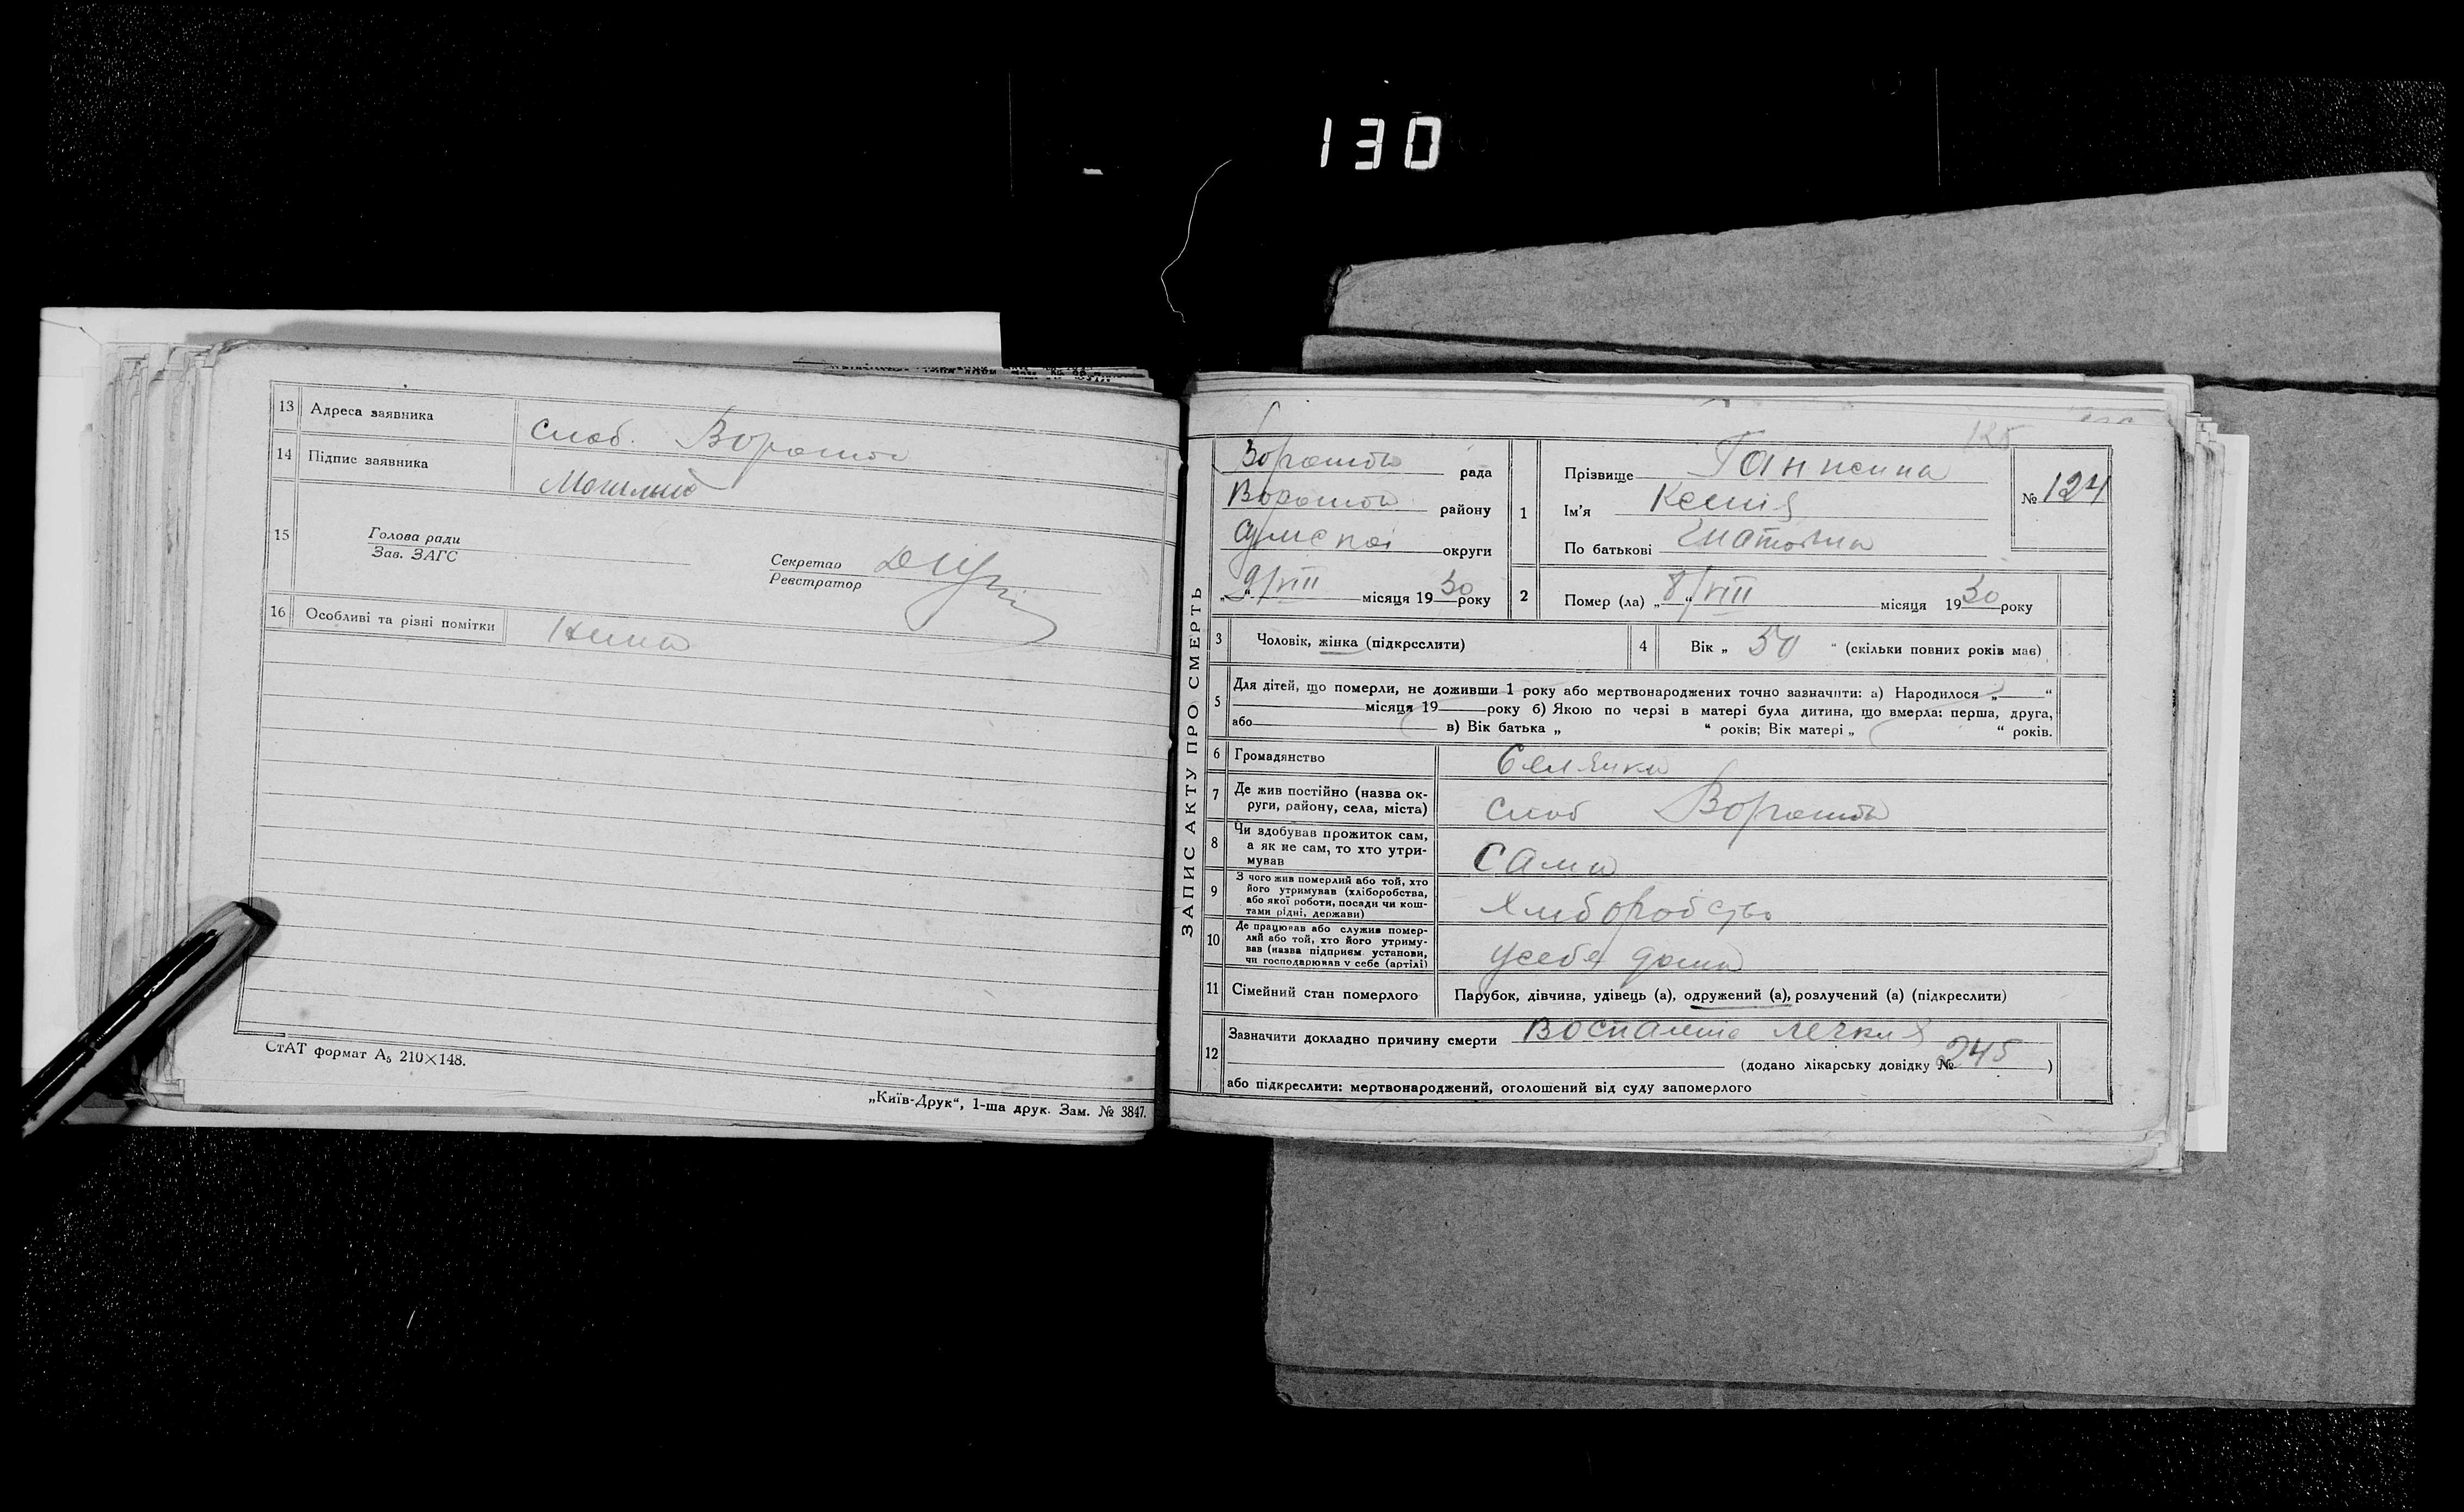 130
13 Адреса заявника слоб. Ворожба
14 Підпис заявника
15 Голова ради
Зав. ЗАГС
Секретар
Реєстратор
16 Особливі та різні помітки Нема
СтАТ формат А₅ 210×148.
„Київ-Друк“, 1-ша друк. Зам. № 3847.
ЗАПИС АКТУ ПРО СМЕРТЬ
125
рада
району
Сумської округи
„9/VIII“ місяця 1930 року
1 Прізвище
Ім'я
По батькові
№ 124
2 Помер (ла) „8/VIII“ місяця 1930 року
3 Чоловік, жінка (підкреслити)
4 Вік „50“ (скільки повних років мав)
5 Для дітей, що померли, не доживши 1 року або мертвонароджених точно зазначити: а) Народилося „ “
місяця 19 року б) Якою по черзі в матері була дитина, що вмерла: перша, друга,
або в) Вік батька „ “ років; Вік матері „ “ років.
6 Громадянство Селянка
7 Де жив постійно (назва ок-
руги, району, села, міста) слоб Ворожба
8 Чи здобував прожиток сам,
а як не сам, то хто утри-
мував Сама
9 З чого жив померлий або той, хто
його утримував (хліборобства,
або якої роботи, посади чи кош-
тами рідні, держави) Хліборобство
10 Де працював або служив помер-
лий або той, хто його утриму-
вав (назва підприєм. установи,
чи господарював у себе (артілі) усебе дома
11 Сімейний стан померлого Парубок, дівчина, удівець (а), одружений (а), розлучений (а) (підкреслити)
12 Зазначити докладно причину смерти Воспаление легких
(додано лікарську довідку № 245)
або підкреслити: мертвонароджений, оголошений від суду запомерлого